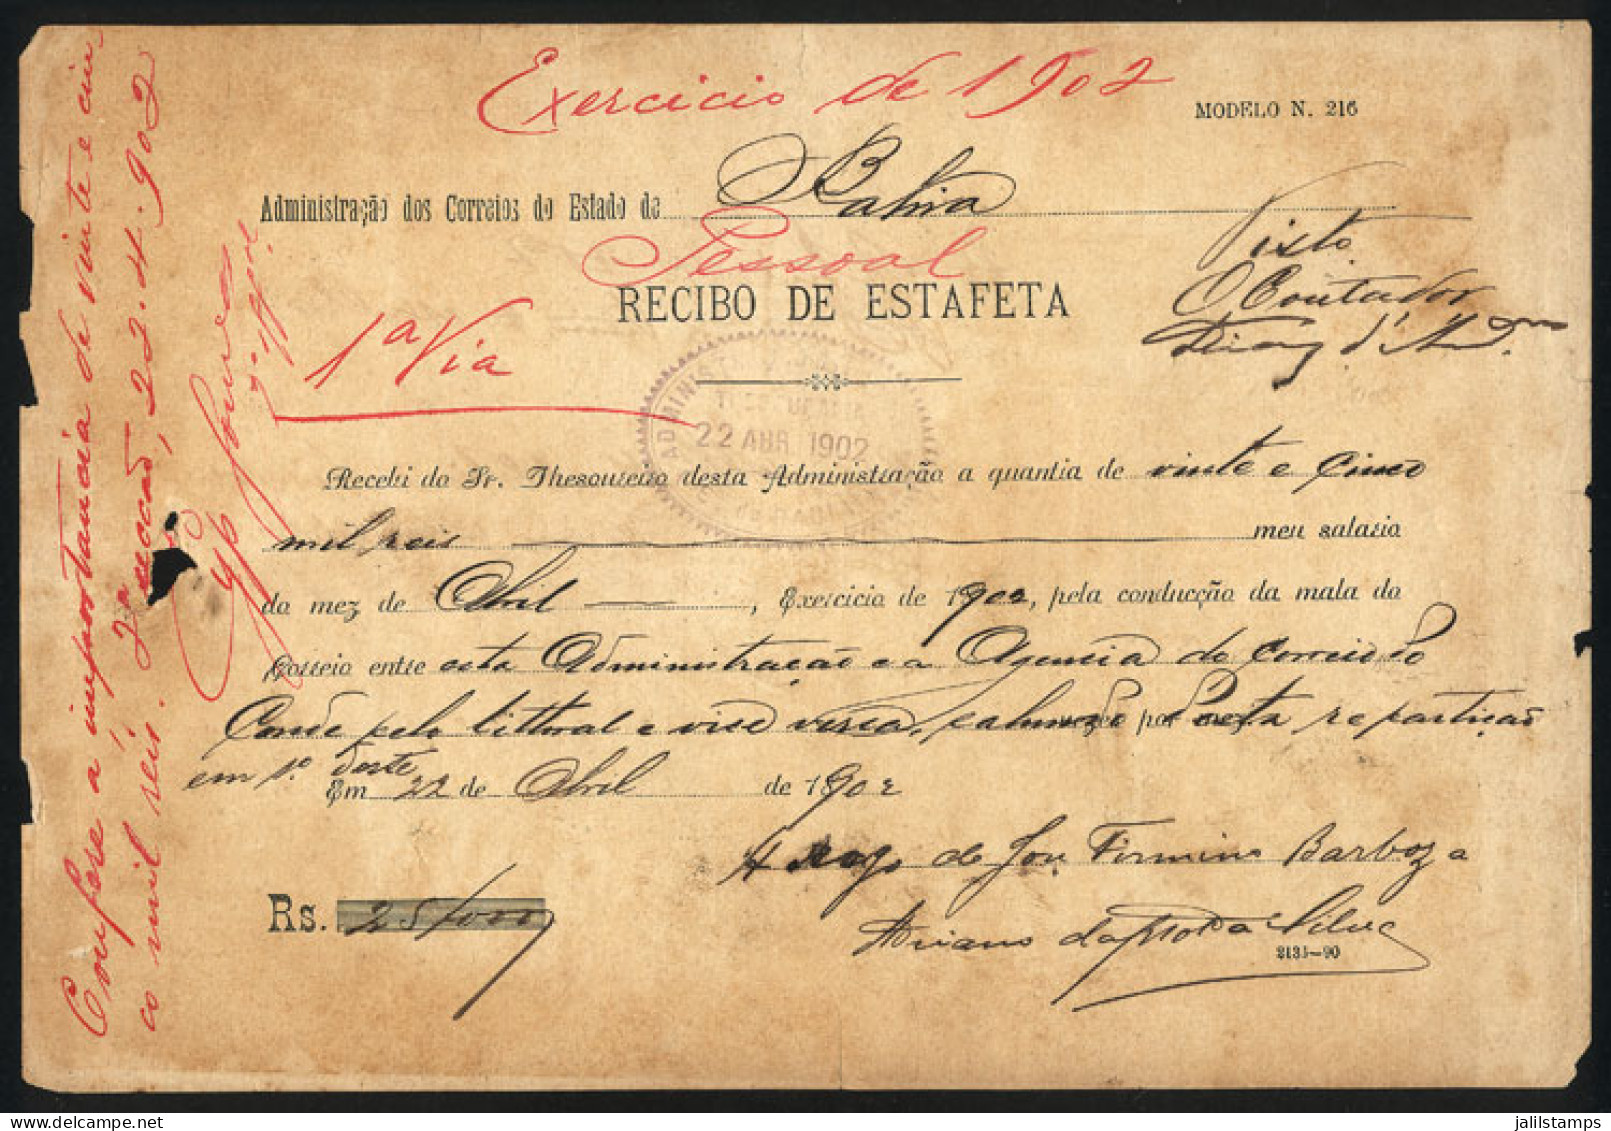 Exercicio de 1902
MODELO N. 216
Administração dos Correios do Estado de Bahia
Pessoal
Visto
O Contador
RECIBO DE ESTAFETA
1ª Via
ADMINIST
22 ABR 1902
Recebi do Sr. Thesoureiro desta Administração a quantia de vinte e cinco
mil reis meu salario
do mez de Abril, Exercicio de 1902, pela conducção da mala do
Correio entre esta Administração e a Agencia do Correio do
Conde pelo littoral e vice versa, por esta repartição
em 1º deste
Em 22 de Abril de 1902
A rogo de José Firmino Barboza
Rs. 25$000
Adriano da Motta Silva
2135-90
Confere a importancia de vinte e cin
co mil reis. 2ª secção, 22.4.902
jalilstamps